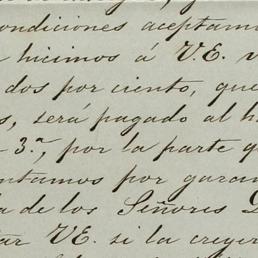 condiciones aceptamo
hicimos á V.E. v
dos por ciento, que
s, será pagado al h
3.ª, por la parte q
ntamos por garan
a de los Señores D
tar VE. si la creyer